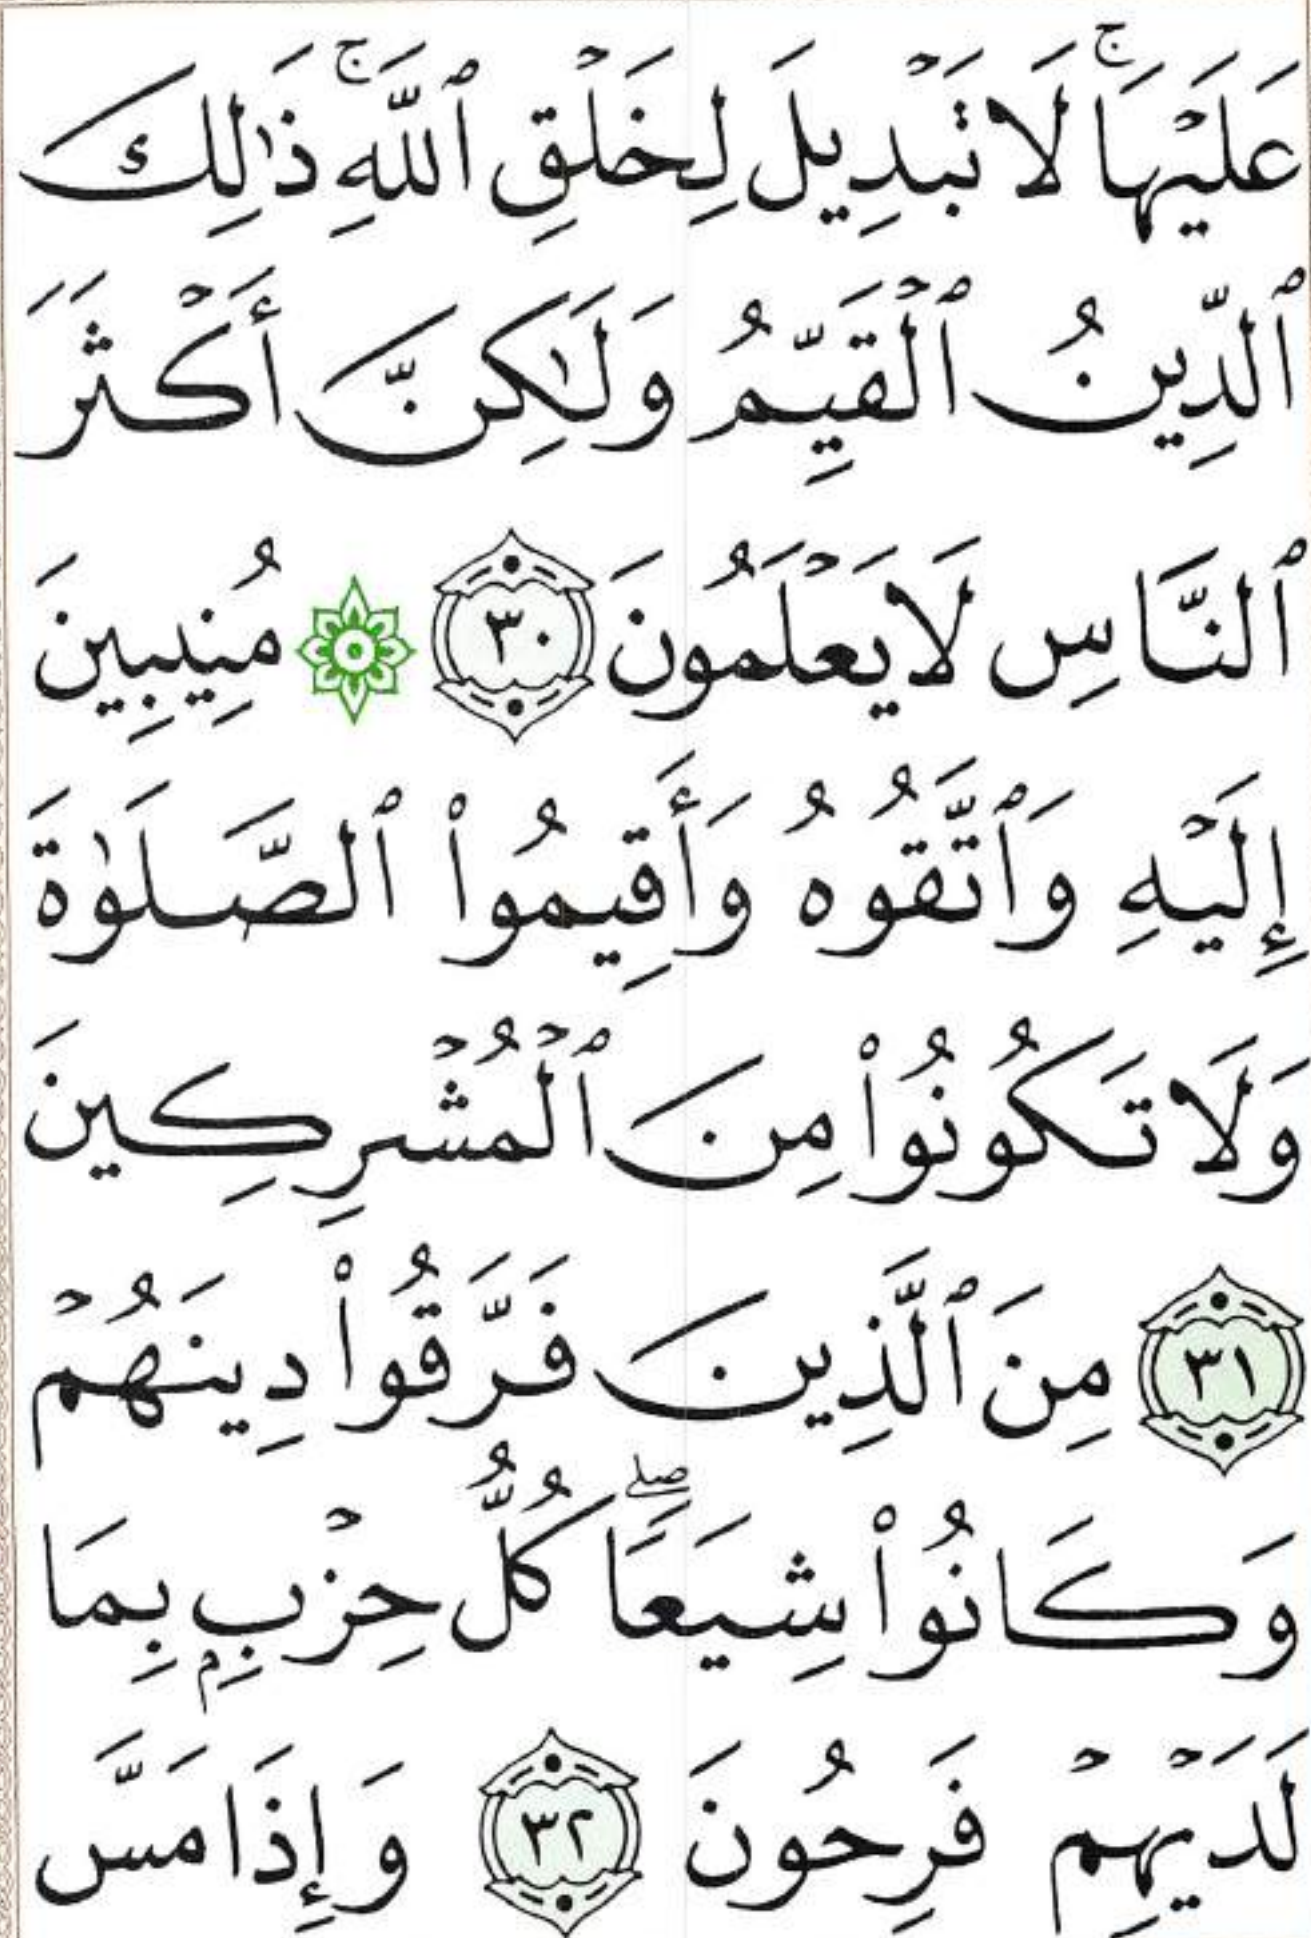 عَلَيْهَاۚ لَا تَبْدِيلَ لِخَلْقِ ٱللَّهِۚ ذَٰلِكَ
ٱلدِّينُ ٱلْقَيِّمُ وَلَٰكِنَّ أَكْثَرَ
ٱلنَّاسِ لَا يَعْلَمُونَ ٣٠ ۞ مُنِيبِينَ
إِلَيْهِ وَٱتَّقُوهُ وَأَقِيمُوا۟ ٱلصَّلَوٰةَ
وَلَا تَكُونُوا۟ مِنَ ٱلْمُشْرِكِينَ
٣١ مِنَ ٱلَّذِينَ فَرَّقُوا۟ دِينَهُمْ
وَكَانُوا۟ شِيَعًاۖ كُلُّ حِزْبٍۭ بِمَا
لَدَيْهِمْ فَرِحُونَ ٣٢ وَإِذَا مَسَّ